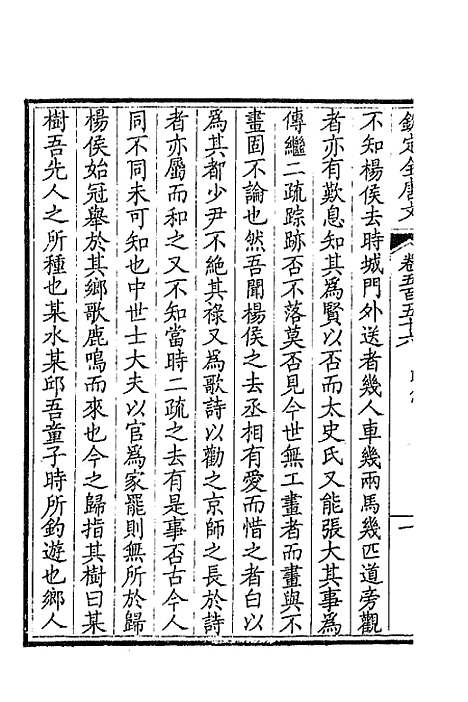 欽定全唐文 卷五百五十六
不知楊侯去時城門外送者幾人車幾兩馬幾匹道旁觀
者亦有歎息知其爲賢以否而太史氏又能張大其事爲
傳繼二疏踪跡否不落莫否見今世無工畫者而畫與不
畫固不論也然吾聞楊侯之去丞相有愛而惜之者白以
爲其都少尹不絶其祿又爲歌詩以勸之京師之長於詩
者亦屬而和之又不知當時二疏之去有是事否古今人
同不同未可知也中世士大夫以官爲家罷則無所於歸
楊侯始冠舉於其鄉歌鹿鳴而來也今之歸指其樹曰某
樹吾先人之所種也某水某邱吾童子時所釣遊也鄉人